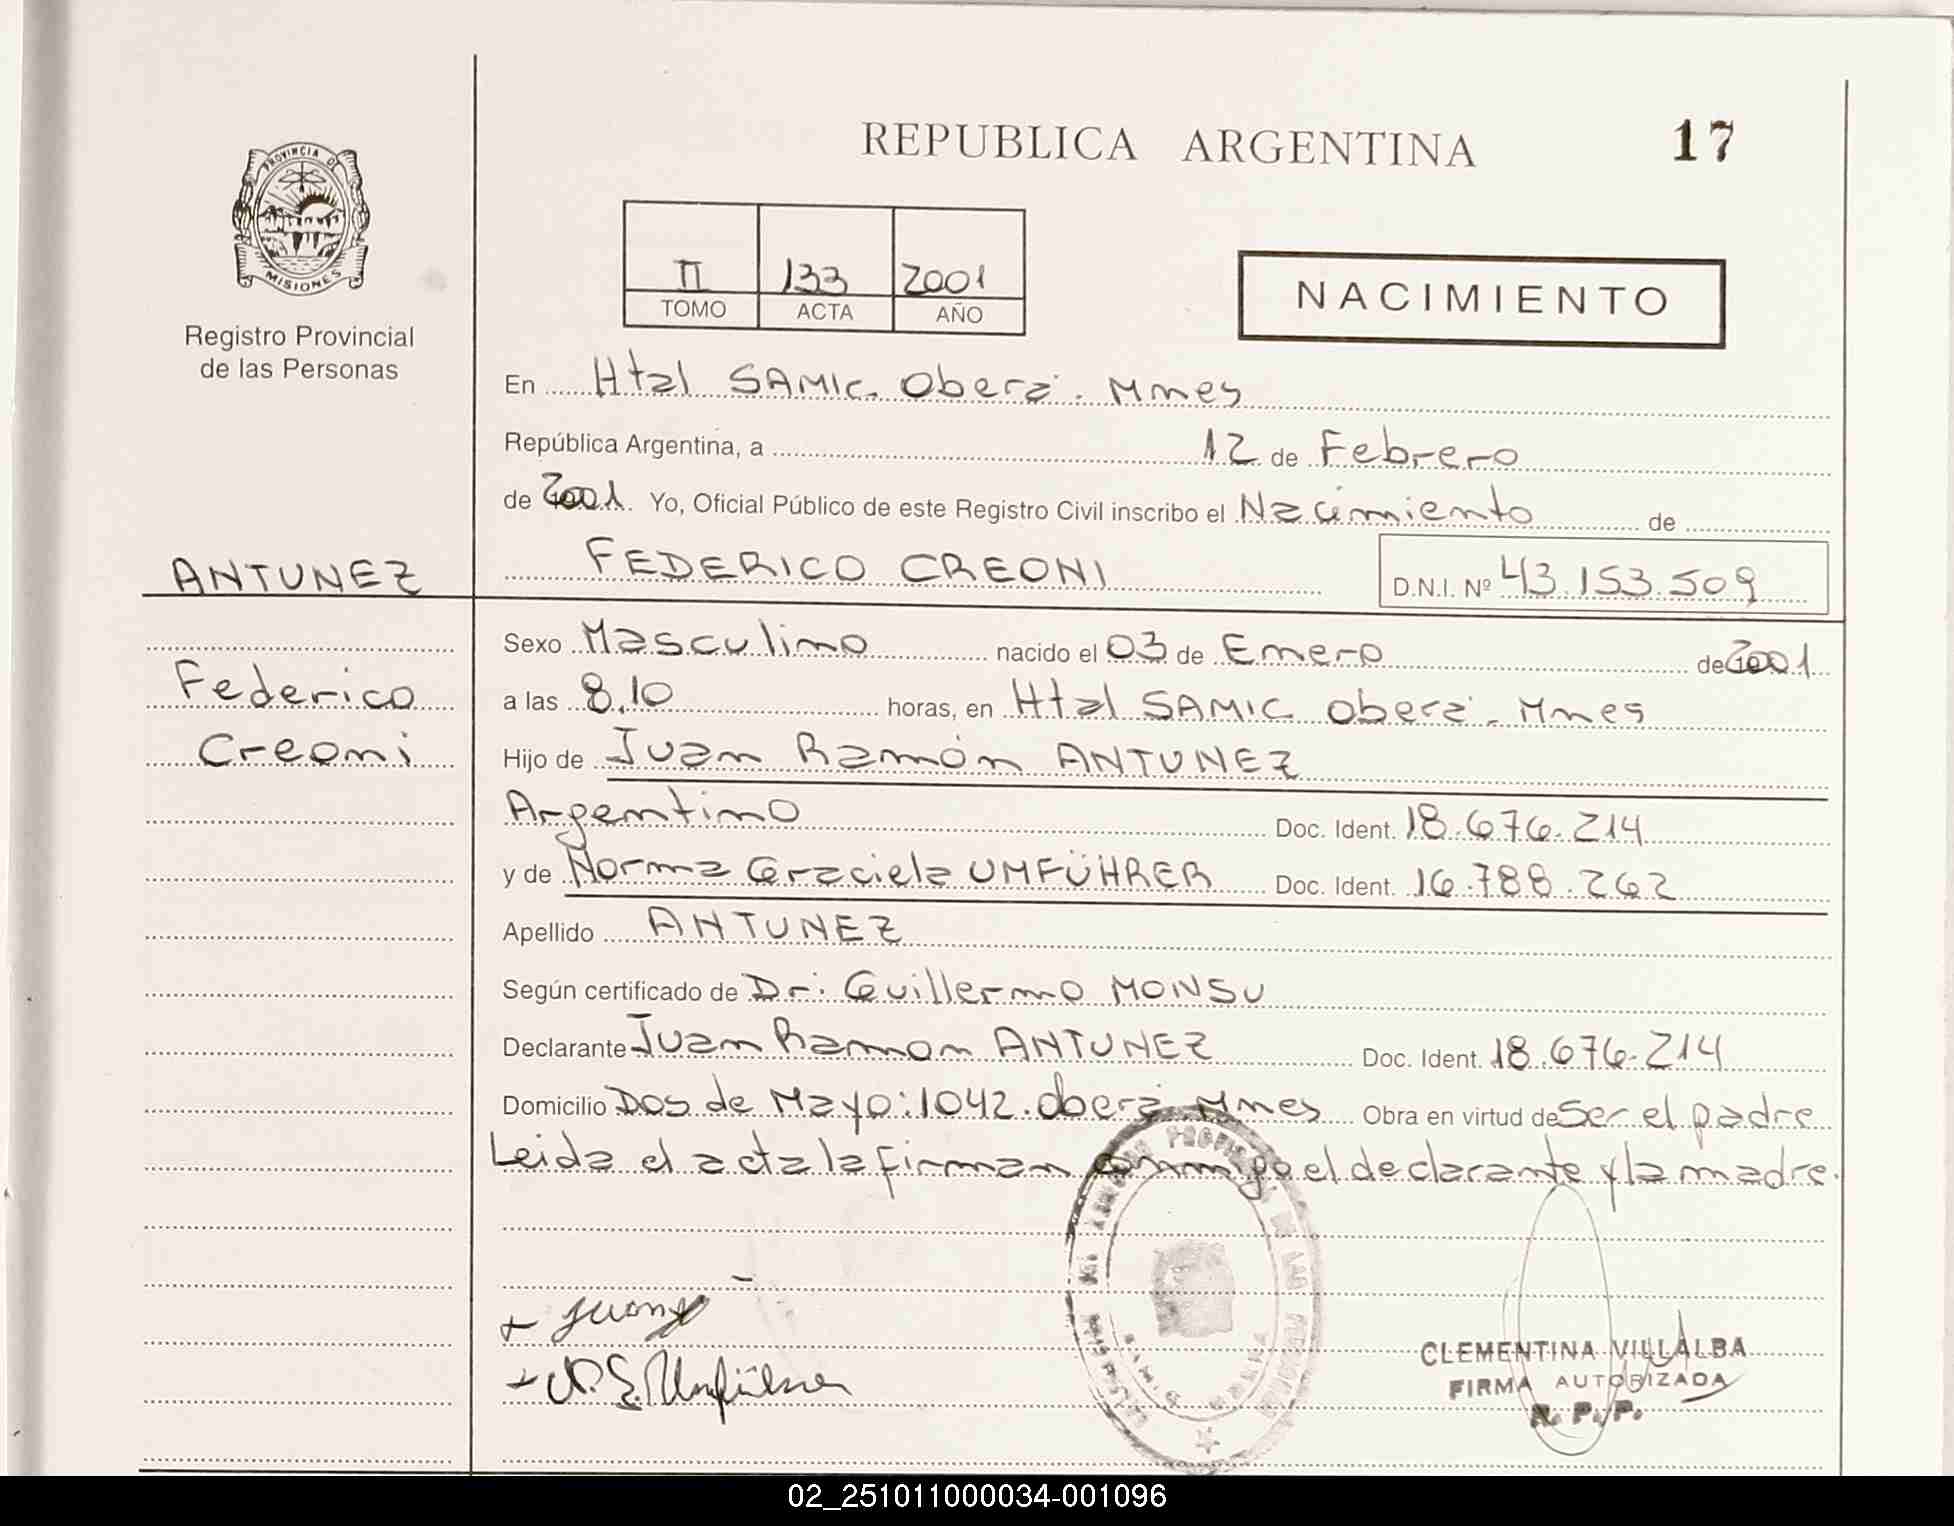 PROVINCIA D
MISIONES
Registro Provincial
de las Personas
REPUBLICA ARGENTINA
17
II 133 2001
TOMO ACTA AÑO
NACIMIENTO
En Htal SAMIC. Oberá. Mnes
República Argentina, a 12 de Febrero
de 2001. Yo, Oficial Público de este Registro Civil inscribo el Nacimiento de
FEDERICO CREONI
D.N.I. Nº 43.153.509
ANTUNEZ
Federico
Creoni
Sexo Masculino nacido el 03 de Enero de 2001
a las 8,10 horas, en Htal SAMIC Oberá. Mnes
Hijo de Juan Ramón ANTUNEZ
Argentino Doc. Ident. 18.676.214
y de Norma Graciela UMFÜHRER Doc. Ident. 16.788.262
Apellido ANTUNEZ
Según certificado de Dr: Guillermo MONSU
Declarante Juan Ramon ANTUNEZ Doc. Ident. 18.676.214
Domicilio Dos de Mayo: 1042. Oberá. Mnes Obra en virtud de Ser el padre
Leida el acta la firman conmigo el declarante y la madre.
CLEMENTINA VILLALBA
FIRMA AUTORIZADA
R. P. P.
02_251011000034-001096